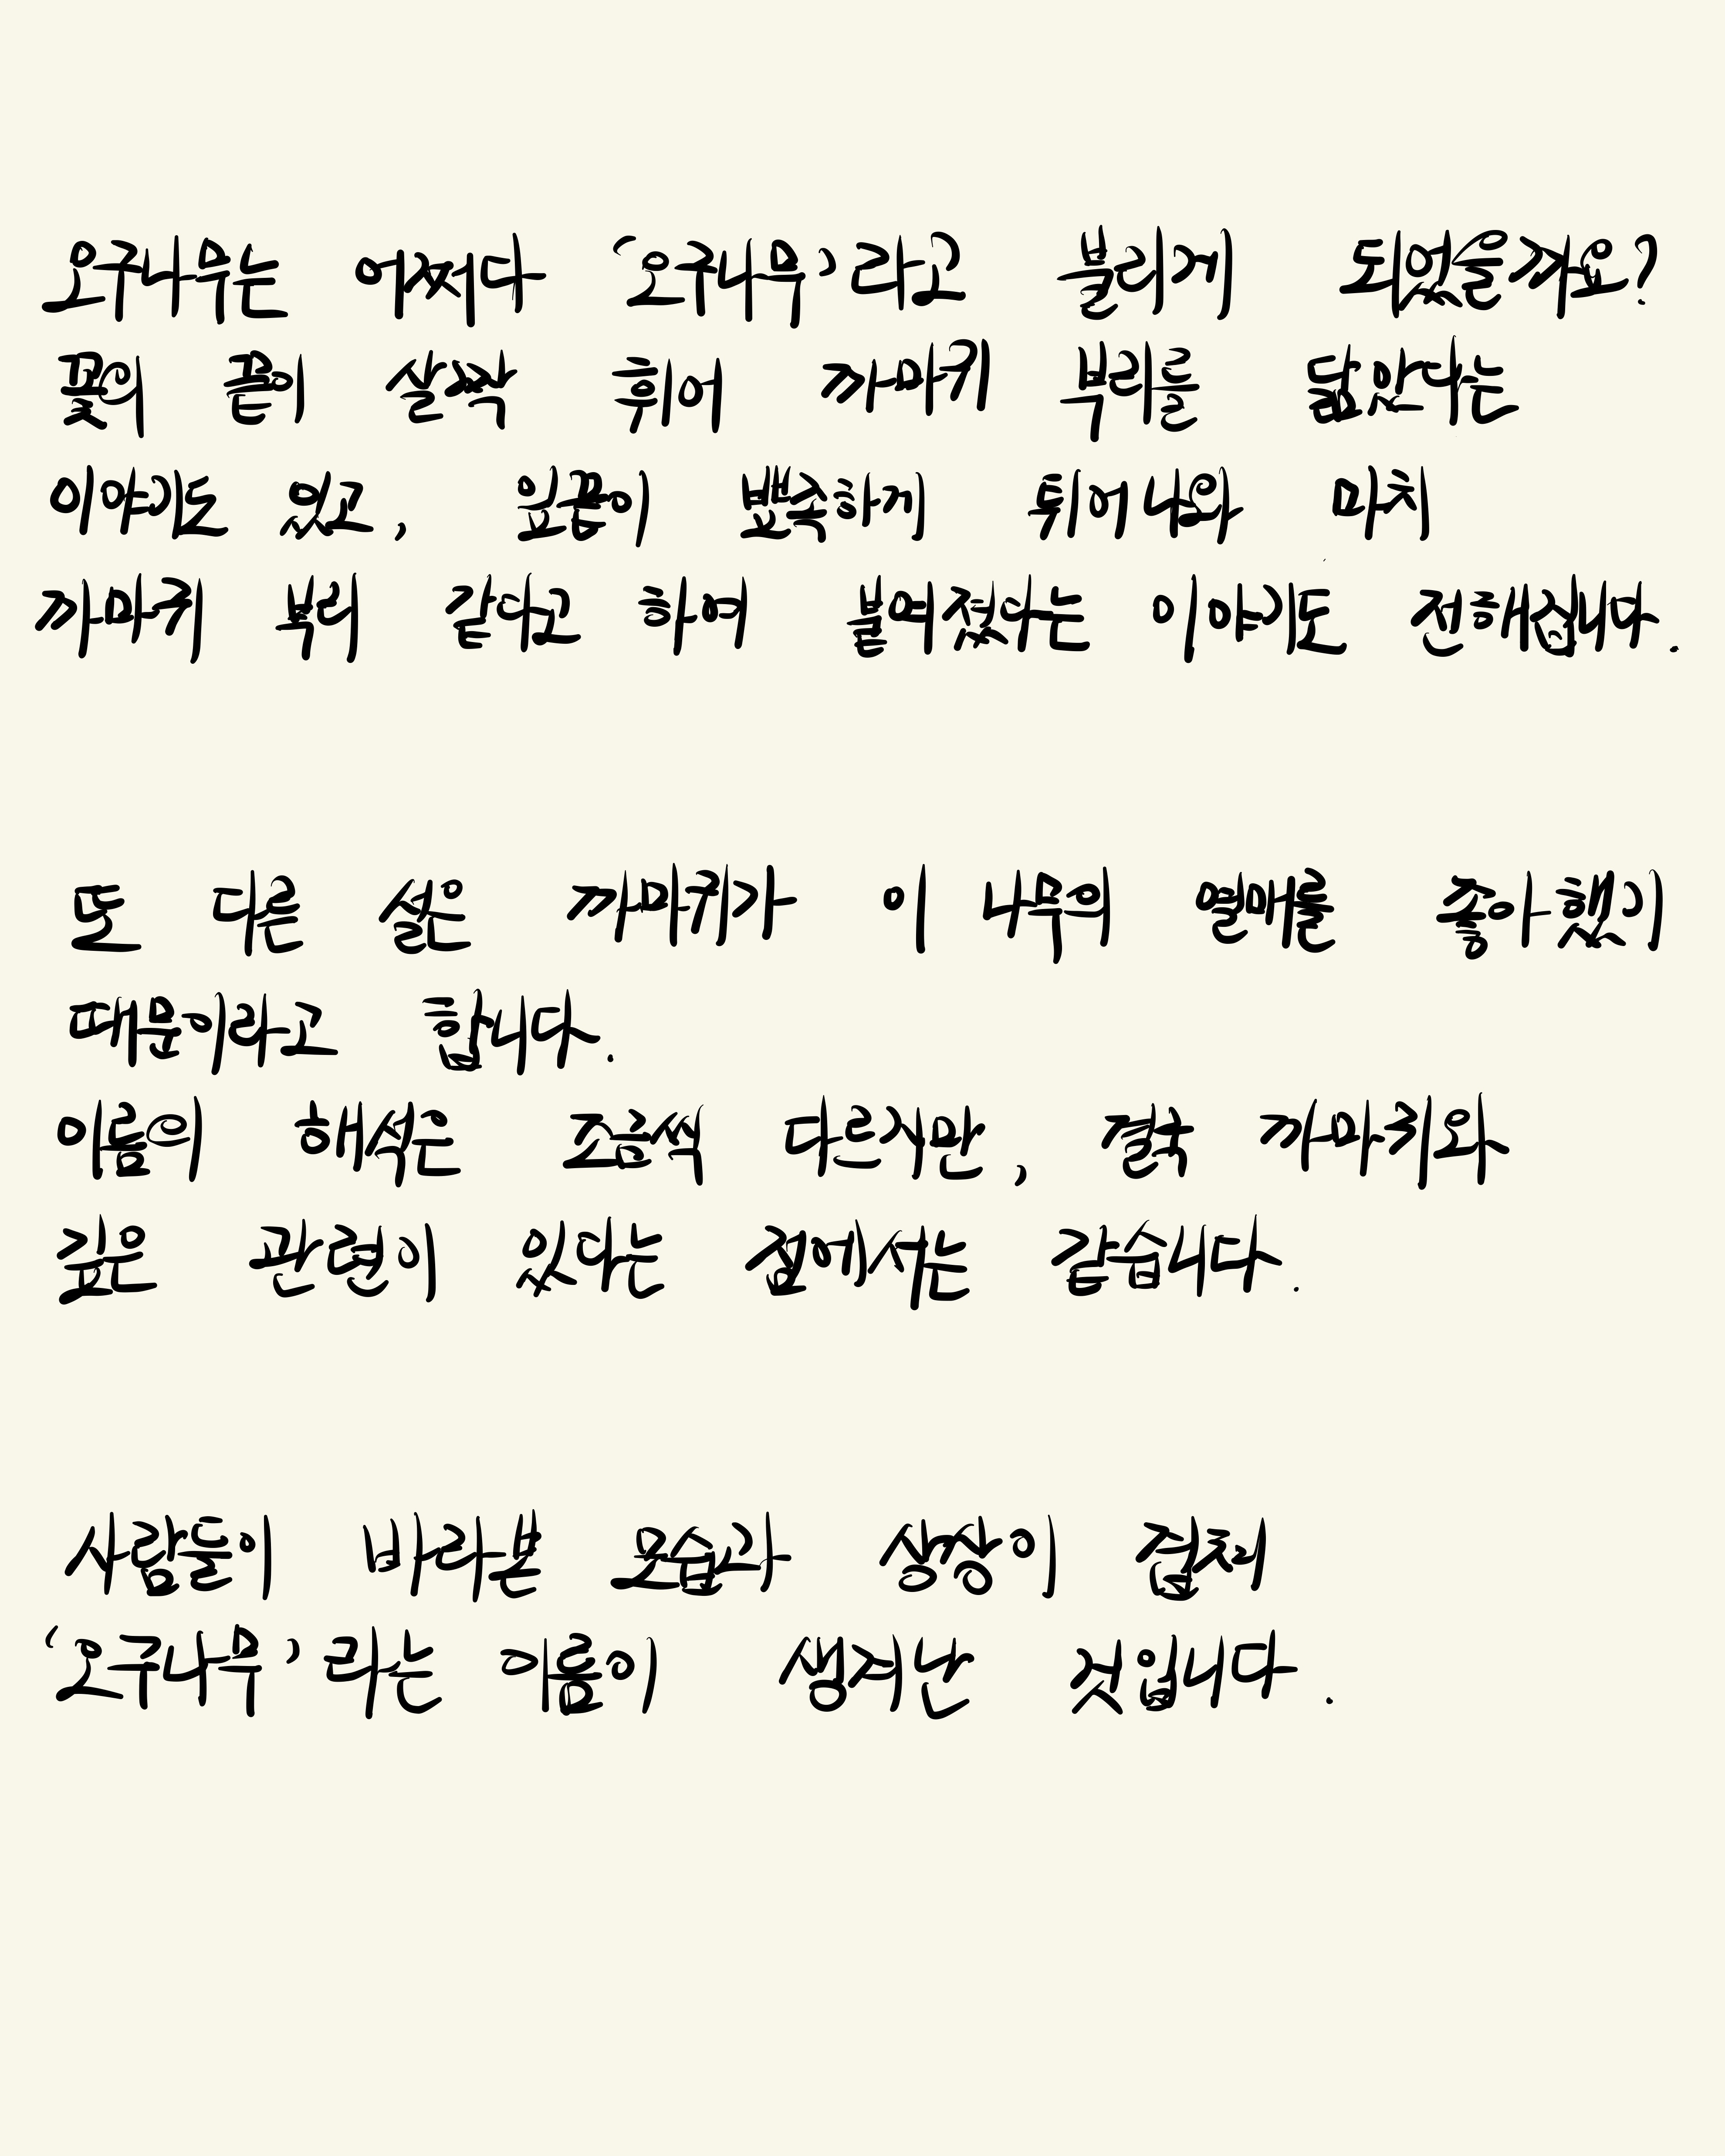 오구나무는 어쩌다 ‘오구나무’라고 불리게 되었을까요?
꽃의 끝이 살짝 휘어 까마귀 부리를 닮았다는
이야기도 있고, 잎끝이 뾰족하게 튀어나와 마치
까마귀 부리 같다고 하여 붙여졌다는 이야기도 전해집니다.
또 다른 설은 까마귀가 이 나무의 열매를 좋아했기
때문이라고 합니다.
이름의 해석은 조금씩 다르지만, 결국 까마귀와
깊은 관련이 있다는 점에서는 같습니다.
사람들이 바라본 모습과 상상이 겹쳐
‘오구나무’라는 이름이 생겨난 것입니다.